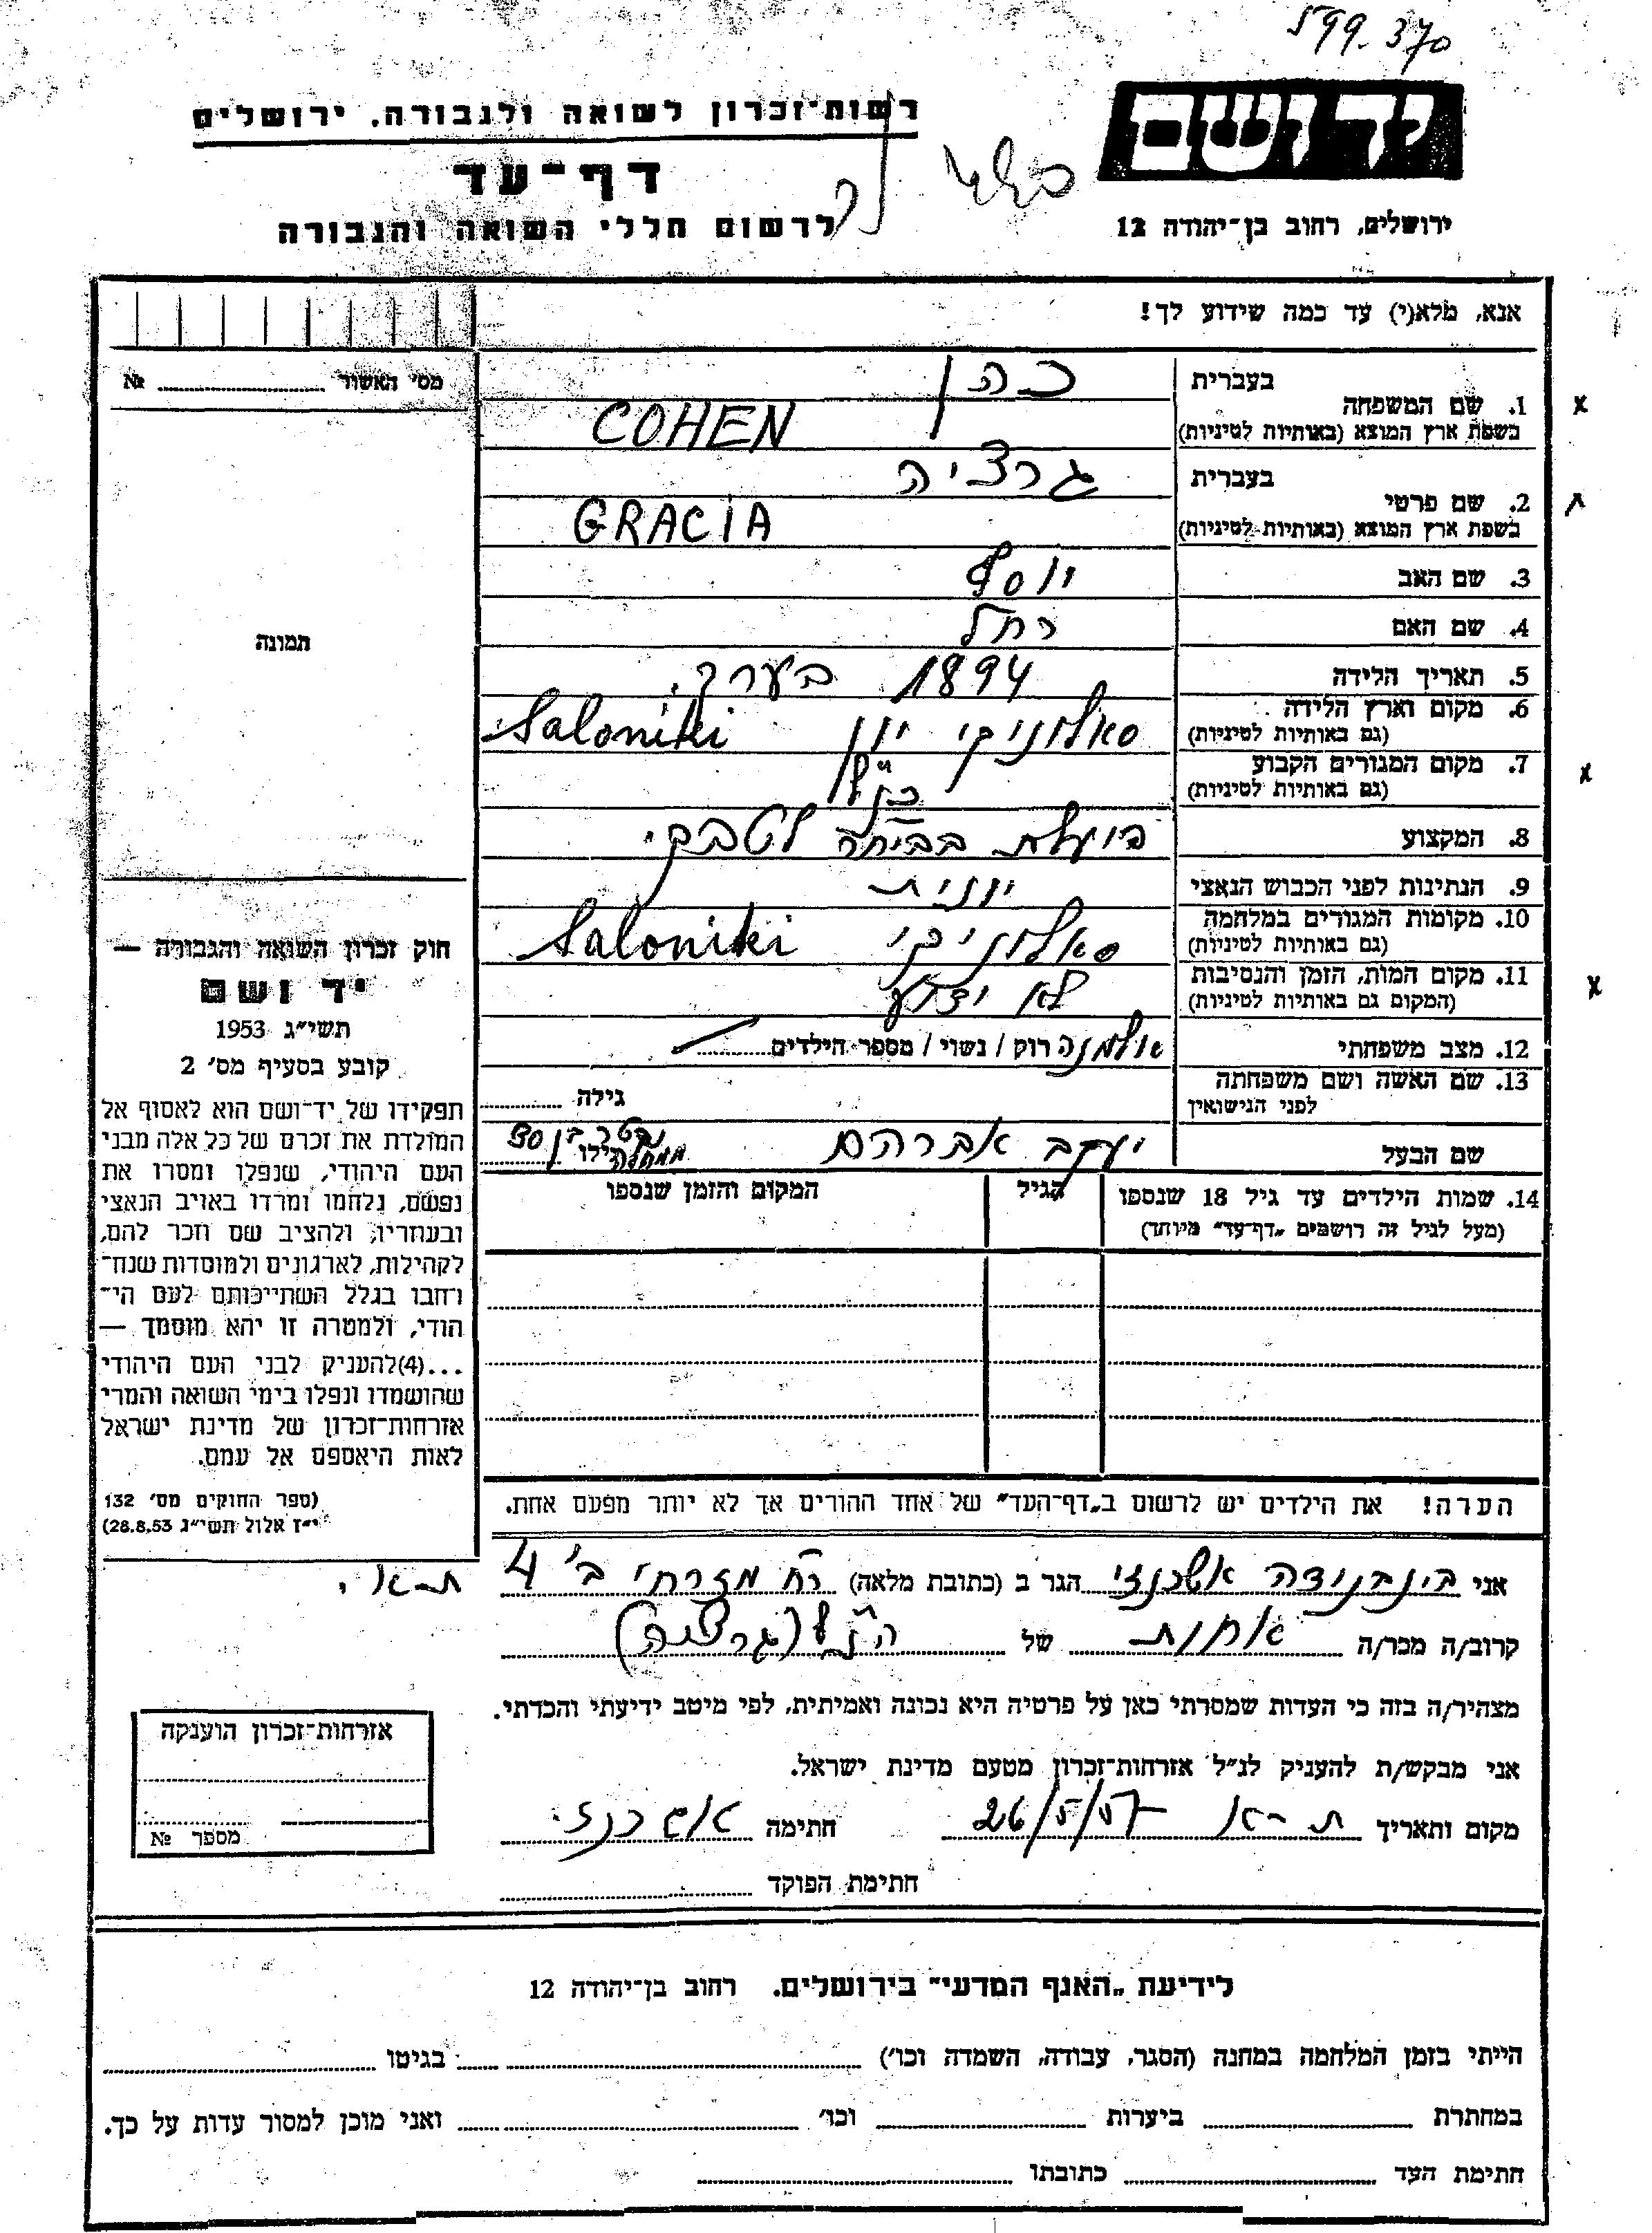 599.370
יד ושם
רשות־זכרון לשואה ולגבורה, ירושלים
דף־עד
לרשום חללי השואה והגבורה
ירושלים, רחוב בן־יהודה 12
אנא, מלא(י) עד כמה שידוע לך!
מס׳ האשור № 
בעברית כהן
1. שם המשפחה
בשפת ארץ המוצא (באותיות לטיניות) COHEN
בעברית גרציה
2. שם פרטי
בשפת ארץ המוצא (באותיות לטיניות) GRACIA
3. שם האב יוסף
4. שם האם רחל
תמונה
5. תאריך הלידה 1894 בערך.
6. מקום וארץ הלידה
(גם באותיות לטיניות) סאלוניקי יוון Saloniki
7. מקום המגורים הקבוע
(גם באותיות לטיניות) כנ״ל
8. המקצוע פועלת לטבק.
9. הנתינות לפני הכבוש הנאצי יונית
10. מקומות המגורים במלחמה
(גם באותיות לטיניות) סאלוניקי Saloniki
11. מקום המות, הזמן והנסיבות
(המקום גם באותיות לטיניות) לא ידוע
12. מצב משפחתי אלמנה רוק / נשוי / מספר הילדים
13. שם האשה ושם משפחתה
לפני הנישואין
גילה
שם הבעל יעקב אברהם נפטר בן 30 ממחלה גילו
14. שמות הילדים עד גיל 18 שנספו
(מעל לגיל זה רושמים „דף־עד״ מיוחד)
הגיל
המקום והזמן שנספו
חוק זכרון השואה והגבורה —
יד ושם
תשי״ג 1953
קובע בסעיף מס׳ 2
תפקידו של יד־ושם הוא לאסוף אל
המולדת את זכרם של כל אלה מבני
העם היהודי, שנפלו ומסרו את
נפשם, נלחמו ומרדו באויב הנאצי
ובעוזריו, ולהציב שם וזכר להם,
לקהילות, לארגונים ולמוסדות שנח־
רחבו בגלל השתייכותם לעם הי־
הודי, ולמטרה זו יהא מוסמך —
...(4)להעניק לבני העם היהודי
שהושמדו ונפלו בימי השואה והמרי
אזרחות־זכרון של מדינת ישראל
לאות היאספם אל עמם.
(ספר החוקים מס׳ 132
י״ז אלול תשי״ג 28.8.53)
הערה! את הילדים יש לרשום ב„דף־העד״ של אחד ההורים אך לא יותר מפעם אחת.
אני אשכנזי הגר ב (כתובת מלאה) רח מזרחי ב׳ 4 ת-א.
קרוב/ה מכר/ה אחות של הנ״ל (גרציה)
מצהיר/ה בזה כי העדות שמסרתי כאן על פרטיה היא נכונה ואמיתית, לפי מיטב ידיעתי והכרתי.
אני מבקש/ת להעניק לנ״ל אזרחות־זכרון מטעם מדינת ישראל.
מקום ותאריך ת-א 26/5/57 חתימה אשכנזי.
חתימת הפוקד
אזרחות־זכרון הוענקה
מספר №
לידיעת „האנף המדעי״ בירושלים. רחוב בן־יהודה 12
הייתי בזמן המלחמה במחנה (הסגר, עבודה, השמדה וכו׳) בגיטו
במחתרת ביערות וכו׳ ואני מוכן למסור עדות על כך.
חתימת העד כתובתו